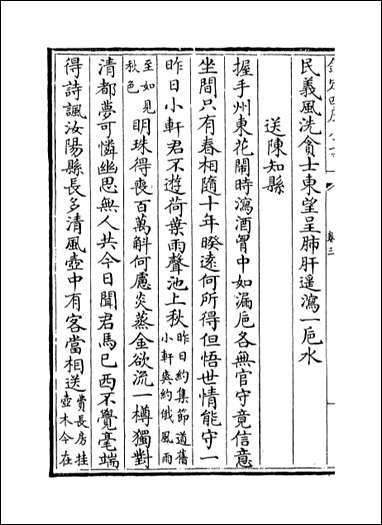 卷三
民義風洗貪士東望呈肺肝遥瀉一巵水
送陳知縣
握手州東花鬧時瀉酒胷中如漏巵各無官守竟信意
坐間只有春相随十年暌逺何所得但悟世情能守一
昨日小軒君不遊荷葉雨聲池上秋昨日約集節道舊小軒爽約俄風雨
至如見秋色明珠得喪百萬斛何慮炎蒸金欲流一樽獨對
清都夢可憐幽思無人共今日聞君馬已西不覺毫端
得詩諷汝陽縣長多清風壺中有客當相送費長房挂壺木今在